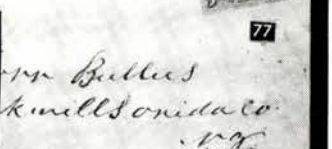 77
Bullus
kwills onida co.
NY